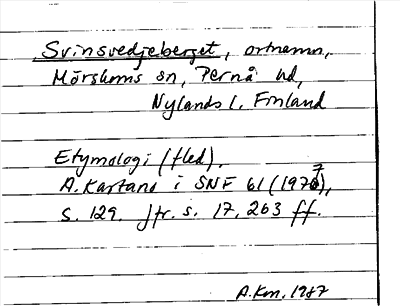 Svinsvedjeberget, ortnamn,
Mörskoms sn, Pernå hd,
Nylands l. Finland
Etymologi (fled).
A. Kartano i SNF 61 (1977),
s. 129. Jfr. s. 17, 263 ff.
A. Kn. 1987